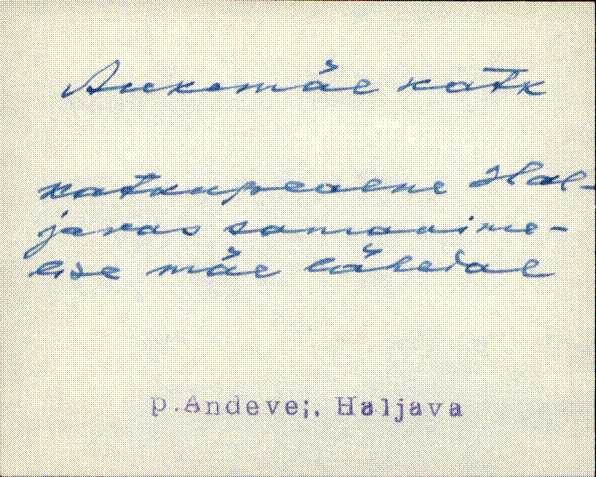 Aukemäe katk
katkupealne Hal-
javas samanime-
lise mäe lähedal
p.Andevei, Haljava